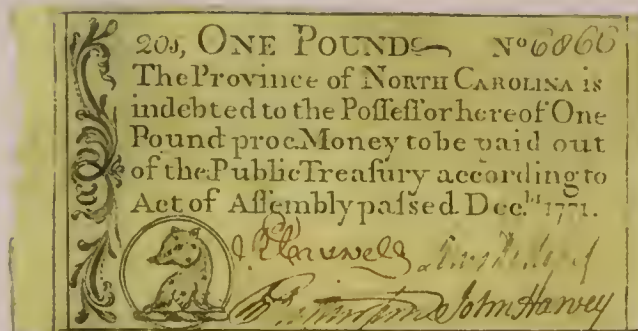 20s, ONE POUND Nº 6866
The Province of NORTH CAROLINA is
indebted to the Poſſeſſor hereof One
Pound proc. Money to be paid out
of the Public Treaſury according to
Act of Aſſembly paſsed Dec. 1771.
John Harvey